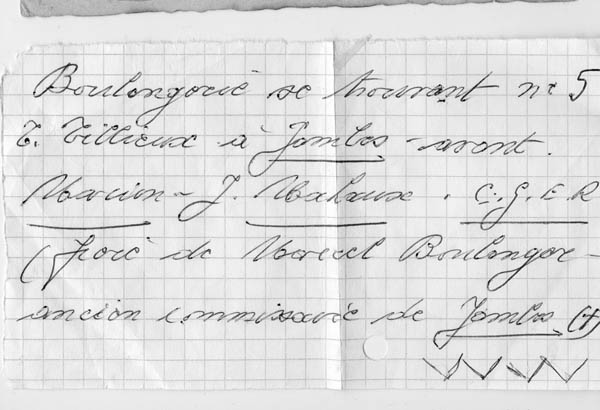 Boulangerie se trouvant n° 5
T. Tillieux à Jambes - avant.
Marion - J. Mahaux. C.G.E.R
(frère de Marcel Boulanger -
ancien commissaire de Jambes (+)